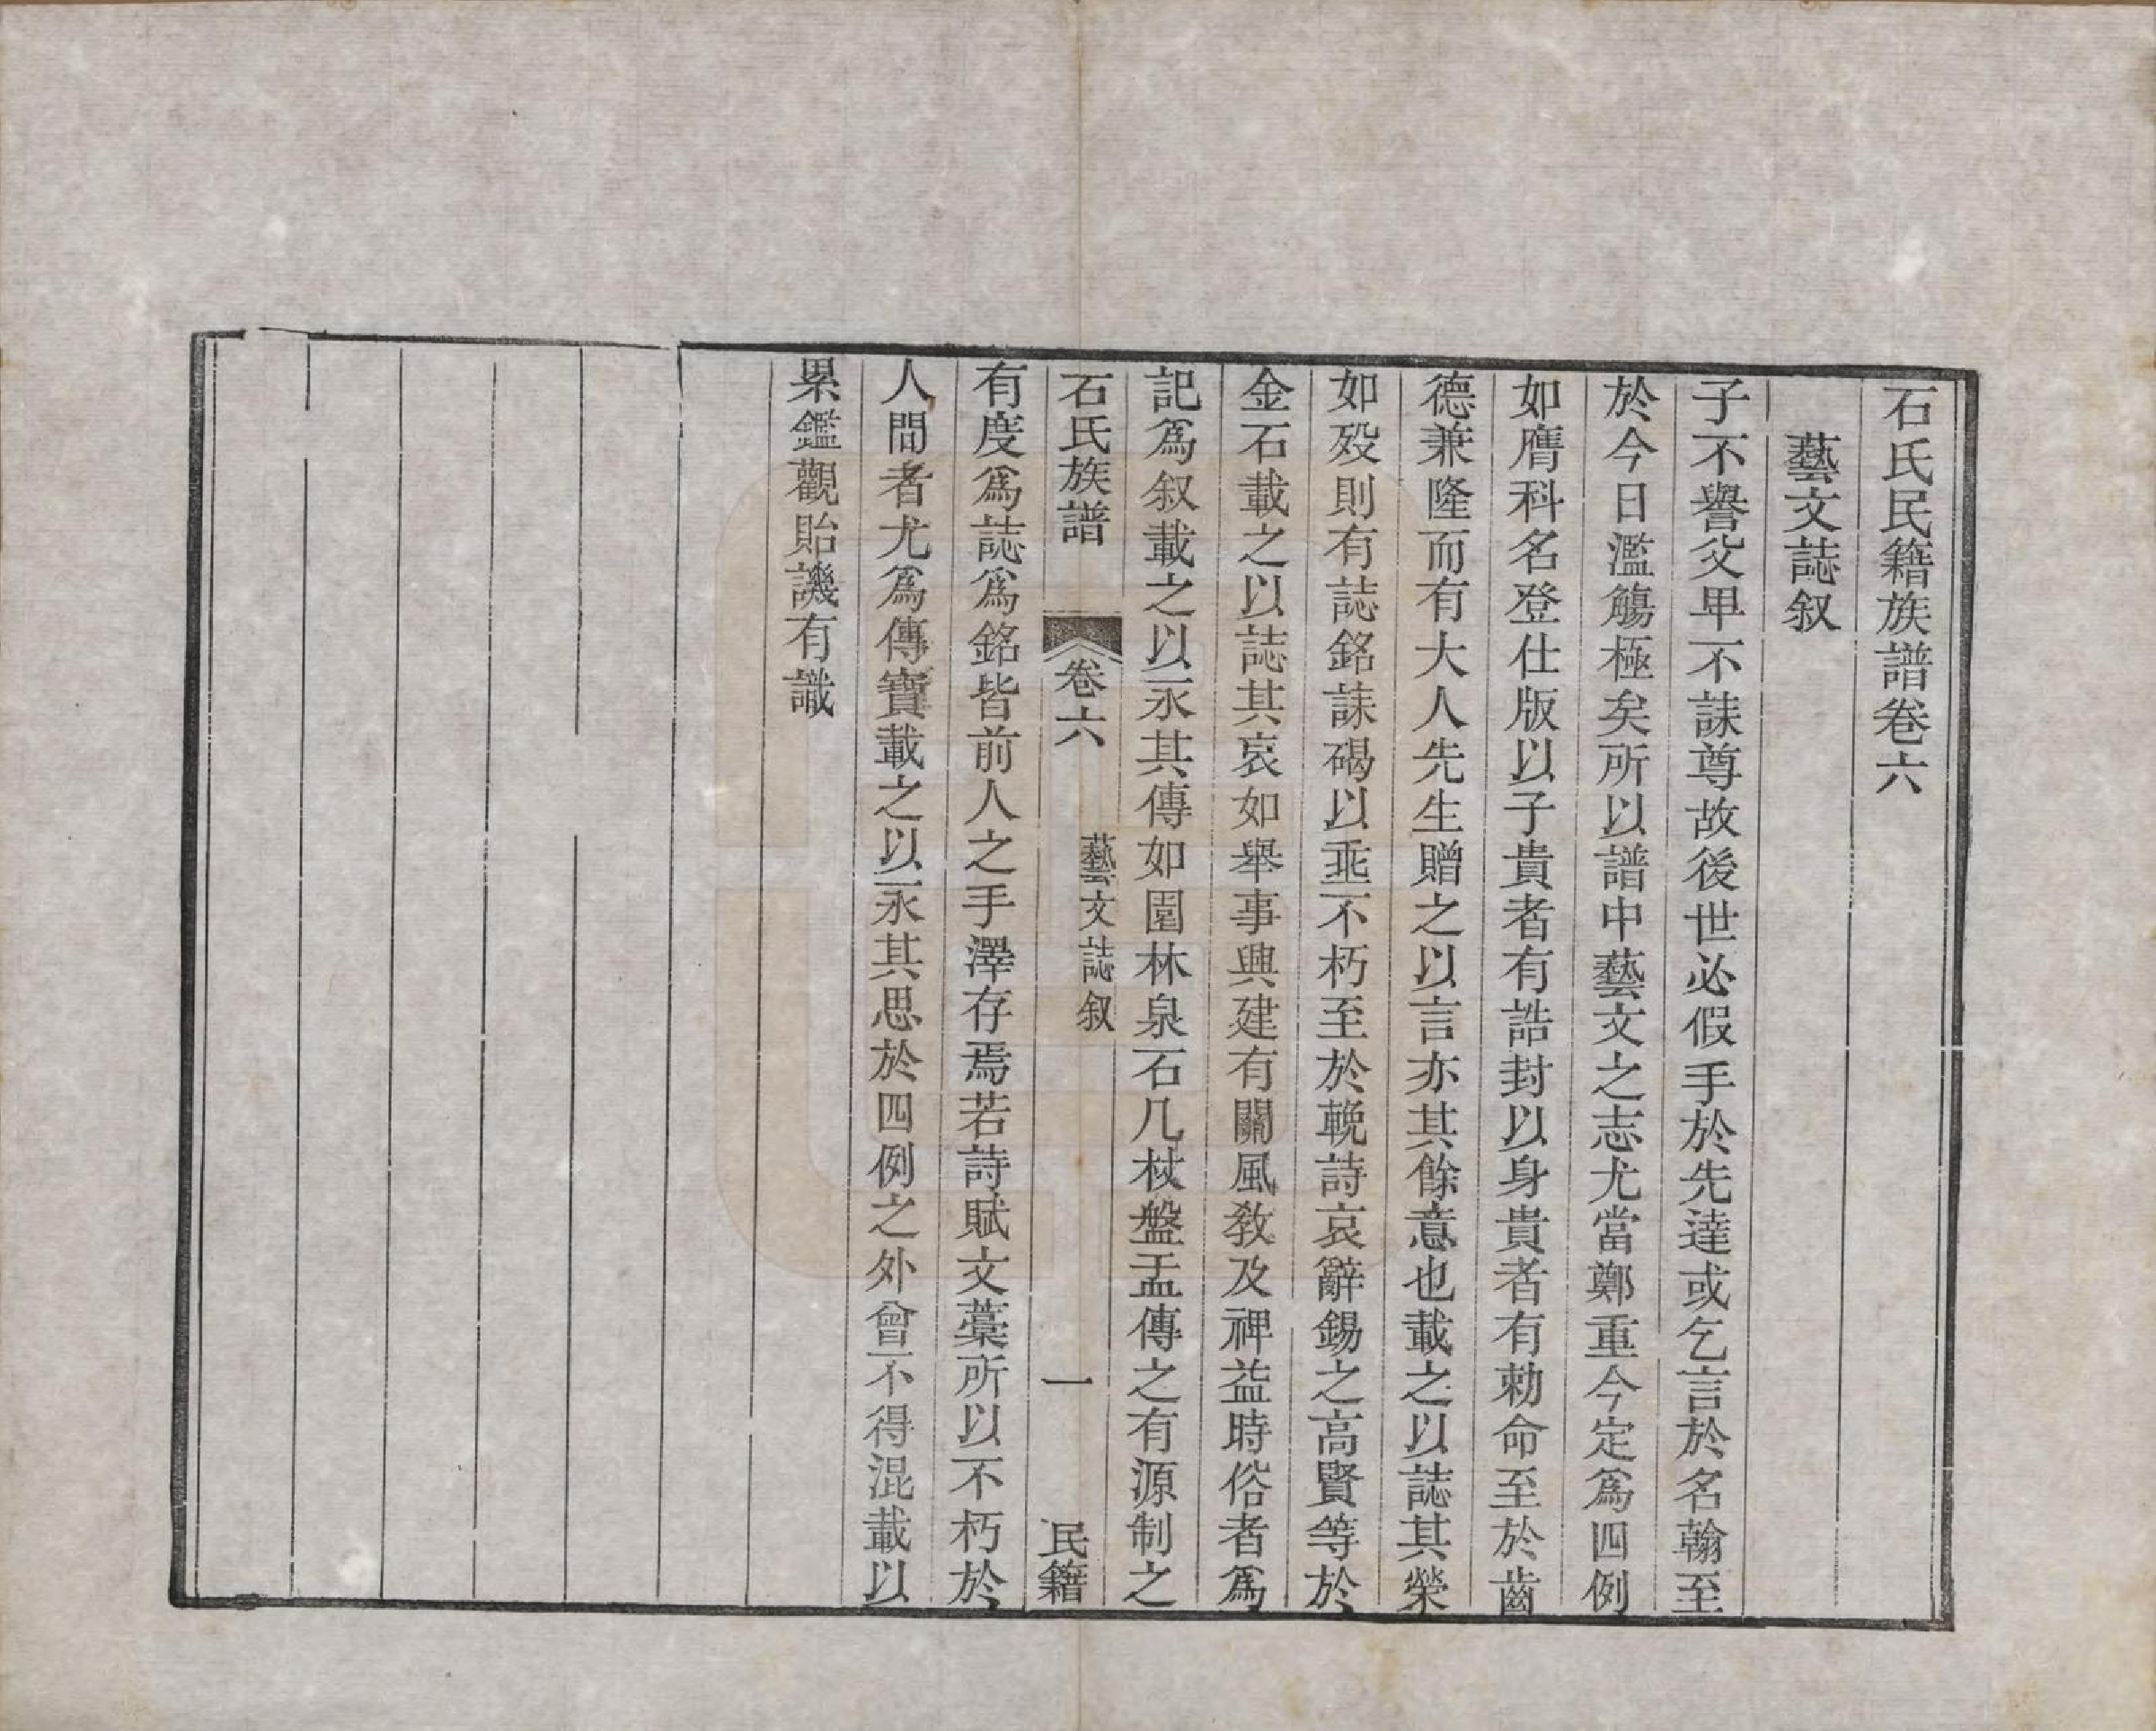 石氏民籍族譜卷六
藝文誌叙
子不譽父卑不誄尊故後世必假手於先達或乞言於名翰至
於今日濫觴極矣所以譜中藝文之志尤當鄭重今定爲四例
如膺科名登仕版以子貴者有誥封以身貴者有勅命至於齒
德兼隆而有大人先生贈之以言亦其餘意也載之以誌其榮
如歿則有誌銘誄碣以垂不朽至於輓詩哀辭錫之高賢等於
金石載之以誌其哀如舉事興建有關風教及裨益時俗者爲
記爲叙載之以永其傳如園林泉石几杖盤盂傳之有源制之
石氏族譜
卷六
藝文誌叙
一
民籍
有度爲誌爲銘皆前人之手澤存焉若詩賦文藁所以不朽於
人間者尤爲傳寶載之以永其思於四例之外曾不得混載以
累鑑觀貽譏有識